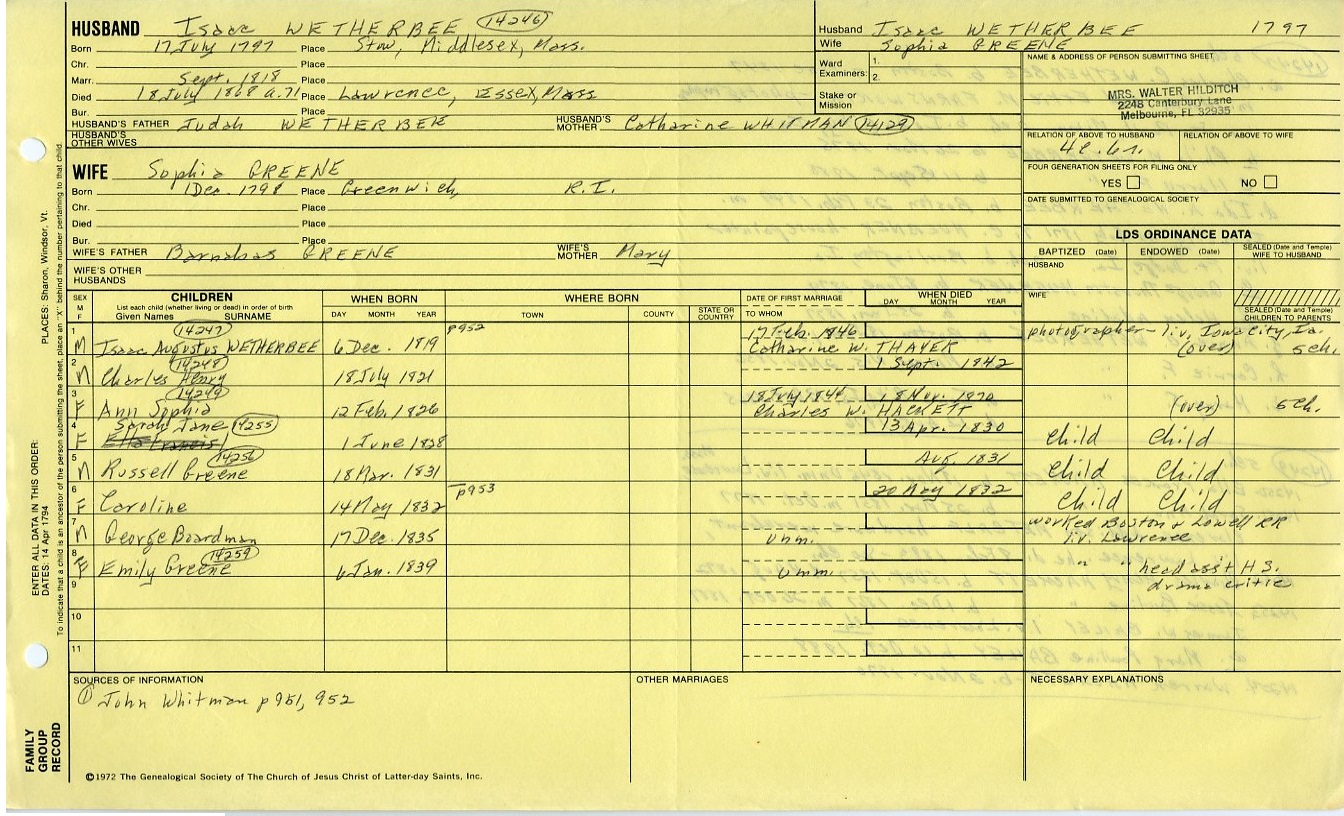 HUSBAND Isaac WETHERBEE 14246
Born 17 July 1797 Place Stow, Middlesex, Mass.
Chr. Place
Marr. Sept. 1818 Place
Died 18 July 1868 a.71 Place Lawrence, Essex, Mass
Bur. Place
HUSBAND'S FATHER Judah WETHERBEE HUSBAND'S MOTHER Catharine WHITMAN 14129
HUSBAND'S OTHER WIVES
Husband Isaac WETHERBEE 1797
Wife Sophia GREENE
Ward Examiners: 1.
2.
Stake or Mission
NAME & ADDRESS OF PERSON SUBMITTING SHEET
MRS. WALTER HILDITCH
2248 Canterbury Lane
Melbourne, FL 32935
RELATION OF ABOVE TO HUSBAND RELATION OF ABOVE TO WIFE
FOUR GENERATION SHEETS FOR FILING ONLY
YES NO
DATE SUBMITTED TO GENEALOGICAL SOCIETY
WIFE Sophia GREENE
Born 1 Dec. 1798 Place Greenwich, R.I.
Chr. Place
Died Place
Bur. Place
WIFE'S FATHER Barnabas GREENE WIFE'S MOTHER Mary
WIFE'S OTHER HUSBANDS
LDS ORDINANCE DATA
BAPTIZED (Date) ENDOWED (Date) SEALED (Date and Temple) WIFE TO HUSBAND
HUSBAND
WIFE
SEALED (Date and Temple) CHILDREN TO PARENTS
SEX M F CHILDREN WHEN BORN WHERE BORN DATE OF FIRST MARRIAGE WHEN DIED
List each child (whether living or dead) in order of birth
Given Names SURNAME DAY MONTH YEAR TOWN COUNTY STATE OR COUNTRY TO WHOM DAY MONTH YEAR
1 14247 p952 17 Feb. 1846 photographer - liv. Iowa City, Ia.
M Isaac Augustus WETHERBEE 6 Dec. 1819 Catharine W. THAYER (over) 5 ch.
2 14248 1 Sept. 1842
M Charles Henry 18 July 1821
3 14249 18 July 1844 18 Nov. 1870
F Ann Sophia 12 Feb. 1826 Charles W. HACKETT (over) 5 ch.
4 Sarah Jane 14255 13 Apr. 1830
F 1 June 1828 Child Child
5 14256 Aug. 1831
M Russell Greene 18 Mar. 1831 Child Child
6 p953 20 May 1832
F Caroline 14 May 1832 Child Child
7 worked Boston & Lowell RR
M George Boardman 17 Dec. 1835 Unm. liv. Lawrence
8 14259
F Emily Greene 6 Jan. 1839 Unm. " " head ass't H.S.
9 drama critic
10
11
SOURCES OF INFORMATION OTHER MARRIAGES NECESSARY EXPLANATIONS
① John Whitman p951, 952
©1972 The Genealogical Society of The Church of Jesus Christ of Latter-day Saints, Inc.
FAMILY GROUP RECORD
ENTER ALL DATA IN THIS ORDER:
DATES: 14 Apr 1794 PLACES: Sharon, Windsor, Vt.
To indicate that a child is an ancestor of the person submitting the sheet, place an "X" behind the number pertaining to that child.